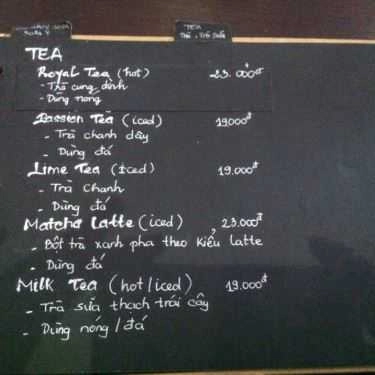 TEA
TRÀ, TRÀ SỮA
TEA
Royal Tea (hot) 23.000đ
- Trà cung đình
- Dùng nóng
Passion Tea (iced) 19000đ
- Trà chanh dây
- Dùng đá
Lime Tea (iced) 19.000đ
- Trà chanh
- Dùng đá
Matcha Latte (iced) 23.000đ
- Bột trà xanh pha theo kiểu latte
- Dùng đá
Milk Tea (hot/iced) 19.000đ
- Trà sữa thạch trái cây
- Dùng nóng/đá